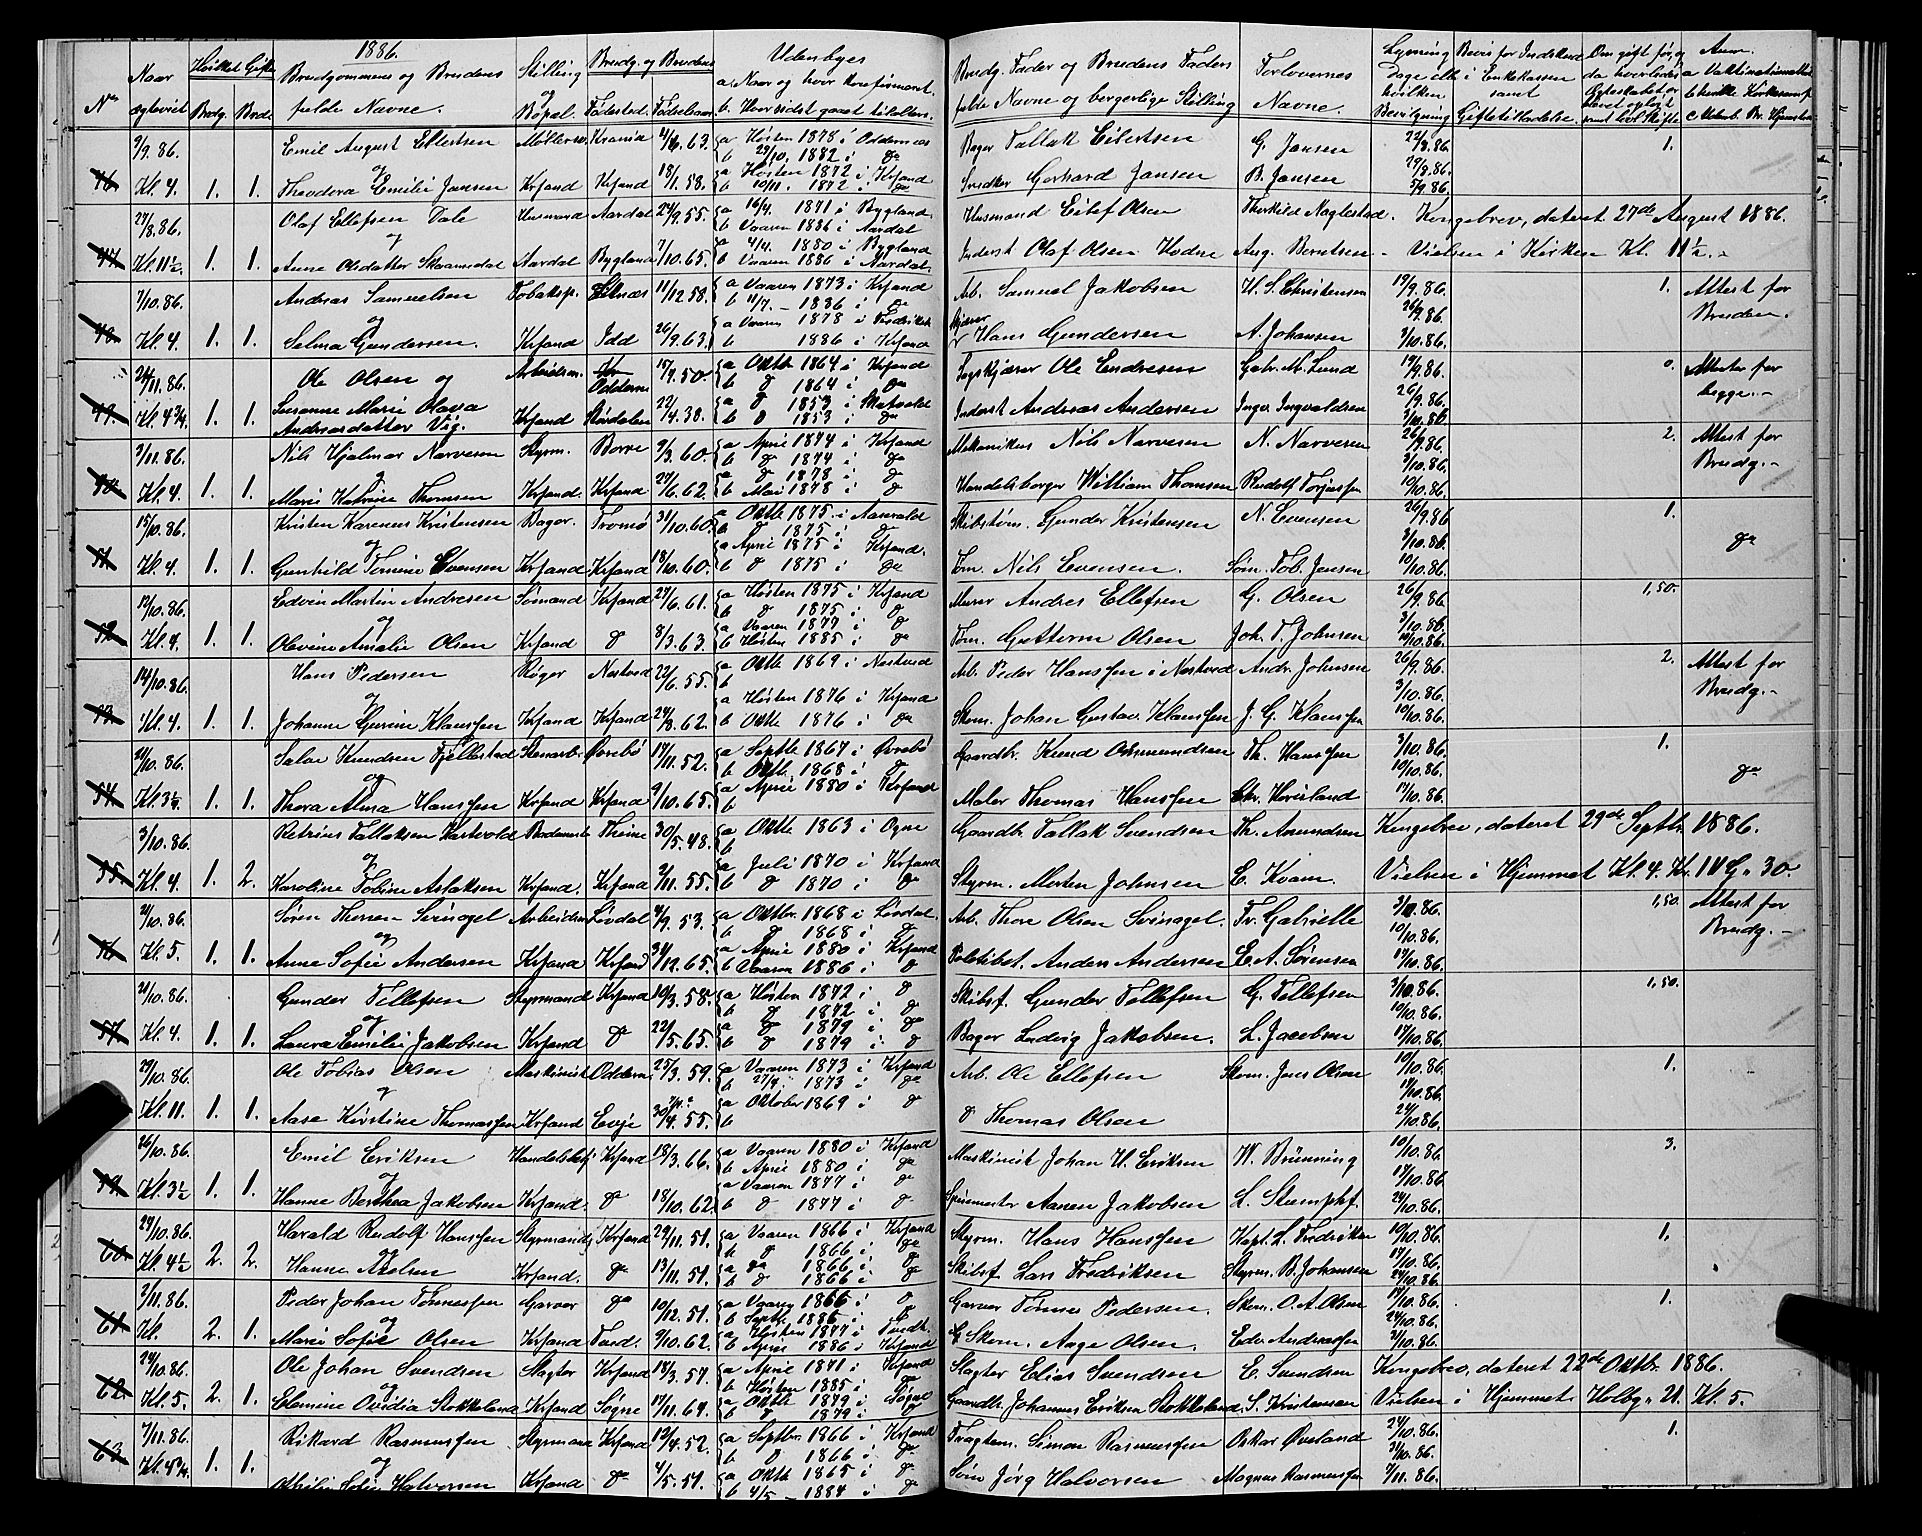 1886.
No
Naar ægteviet
Hvilket Gifte
Brudg. Brud.
Brudgommenes og Brudens fulde Navne.
Stilling og Bopæl.
Brudg. og Brudens
Fødested. Fødselsaar
Udenbyes
a. Naar og hvor konfirmeret.
b. Hvor sidst gaaet til alters.
Brudg. Fader og Brudens Faders fulde Navne og borgerlige Stilling
Forlovernes Navne.
Lysning Dage eller hvilken Bevilgning
Bevis for Indskud i Enkekassen samt Giftetilladelse
Anm.
46. 9/9.86. Emil August Eilertsen Møllersv. Kransd 4/6.63. a Høsten 1878 i Oddernes Bager Tallak Eilertsen G. Jansen 22/8.86. 1.
b 29/10. 1882 i do 29/8.86.
Kl. 4. 1. 1. Theodora Emilie Jansen Krsand Krsand 18/1.58. a Høsten 1872 i Krsand Snedker Gerhard Jansen B. Jansen 5/9.86.
b 10/11. 1872 i do
47. 27/8.86. Olaf Ellefsen Dale Husmand Aardal 24/9.55. a 16/4. 1871 i Bygland Husmand Eilef Olsen Thorkild Naglestad. Kongebrev, dateret 27de August 1886.
b Vaaren 1886 i Aardal
Kl. 11½. 1. 1. Anne Olsdatter Skaamedal Aardal Bygland 7/10.65. a 4/4. 1880 i Bygland Inderst Olaf Olsen Hodne Aug. Berntsen. - Vielsen i Kirken Kl. 11½. -
b Vaaren 1886 i Aardal.
48. 7/10.86. Andreas Samuelsen Tobaksp. 11/12.58. a Vaaren 1873 i Krsand Arb. Samuel Jakobsen H. S. Christensen 19/9.86. 1. Attest for Bruden.
b 11/7. - 1886 i do 26/9.86.
Kl. 4. 1. 1. Selma Gundersen. Krsand Idd 26/9.63. a Vaaren 1878 i Fredriksh Hans Gundersen A. Johansen 3/10.86.
b 1886 i Krsand
49. 24/11.86. Ole Olsen og Arbeidsm. Oddernes 17/9.50. a Oktb 1864 i Krsand Sagskjærer Ole Endresen Gabr. N. Lund 19/9.86. 0. Attester for begge. -
b d 1864 i do 26/9.86.
Kl. 4¾. 1. 1. Susanne Marie Olava Andreasdatter Vig. Krsand Størdalen 22/4.38. a d 1853 i Skatvold Inderst Andreas Andersen Ingv. Ingvaldsen 3/10.86
b d 1853 i do
50. 3/11.86. Nils Hjalmar Narvesen Styrm. Borre 9/3.60. a April 1874 i Krsand Mekanikus Nils Narvesen N. Narvesen 26/9.86. 2. Attest for Brudg. -
b d 1874 i do 3/10.86.
Kl. 4. 1. 1. Marie Katrine Thomsen Krsand. Krsand 27/6.62. a d 1878 i d Handelsborger William Thomsen Rudolf Torjussen 10/10.86.
b Mai 1878 i d
51. 15/10.86. Kristen Karenus Kristensen Bager. Tromø 31/10.60. a Oktb 1875. i Aanvald Skibstøm. Gunder Kristensen N. Evensen 26/9.86 1. do
b d 1875 i d 3/10.86.
Kl. 4. 1. 1. Gunhild Tomine Evensen Krsand Krsand 18/10.60. a April 1875 i Krsand. Tøm. Nils Evensen. Søm. Tob. Jensen 10/10.86.
b d 1875 i do
52. 12/10.86. Edvin Martin Andresen Sømand Krsand 27/6.61. a Høsten 1875 i Krsand Murer Andres Ellefsen G. Olsen 26/9.86. 1,50.
b d 1875 i d 3/10.86.
Kl. 4. 1. 1. Olevine Amalie Olsen Krsand d 8/3.63. a Vaaren 1877 i d Tøm. Guttorm Olsen Joh. T. Johnsen 10/10.86.
b Høsten 1885 i do
53. 14/10.86. Hans Pedersen Røger Nestved 22/6.55. a Oktb 1869 i Nestved Arb. Peder Hanssen i Nestved Andr. Johnsen 26/9.86. 2. Attest for Brudg. -
b 3/10.86.
Kl. 4. 1. 1. Johanne Gurine Klausen Krsand Krsand 24/8.62. a Høsten 1876 i Krsand Skom. Johan Gustav Klaussen J. G. Klaussen 10/10.86.
b Oktb 1876 i do
54. 21/10.86. Salve Knudsen Fjellestad Stenarb. Øvrebø 17/11.52. a Septb 1867 i Øvrebø Gaardbr. Knud Osmundsen Th. Hanssen 3/10.86. 1. do
b Oktb. 1868 i d 10/10.86.
Kl. 3½. 1. 1. Thora Alma Hanssen Krsand Krsand 9/10.65. a April 1880 i Krsand Maler Thomas Hanssen Chr. Hovisland 17/10.86.
b
55. 3/10.86. Petrine Tallaksen Hartvold Theine 30/5.48. a Oktb 1863 i Ogne Gaardb. Tallak Svendsen Th. Amundsen Kongebrev, dateret 29de Septbr. 1886.
b
Kl. 4. 1. 2. Karoline Tobine Aslaksen Krsand. Krsand 2/11.55. a Juli 1870 i Krsand Styrm. Morten Johnsen E. Kvam. Vielsen i Hjemmet Kl. 4.
b d 1870 i do
56. 21/10.86. Søren Thoresen Svinagel Arbeidsm Lisdal 4/9.53. a Oktbr. 1868 i Lisdal. Arb. Thore Olsen Svinagel. Fr. Gabrielle 3/10.86. 1,50. Attest for Brudg. -
b d 1868 i d 10/10.86.
Kl. 5. 1. 1. Anne Sofie Andersen Krsand Krsand 31/12.65. a April 1880 i Krsand Politibet. Anders Andersen E. A. Sørensen 17/10.86.
b Vaaren 1886 i d
57. 21/10.86. Gunder Tellefsen Styrmand Krsand 10/3.58. a Høsten 1872 i d Skibsf. Gunder Tellefsen G. Tellefsen 3/10.86. 1,50.
b d 1872 i do 10/10.86.
Kl. 4. 1. 1. Laura Emilie Jakobsen Krsand d 22/5.65. a d 1879 i do Bager Ludvig Jakobsen. L. Jacobsen 17/10.86.
b d 1879 i d
29/10.86. Ole Tobias Olsen Maskinist Oddernes 25/3.59. a Vaaren 1873 i Krsand Arb. Ole Ellefsen Skom. Jens Olsen 10/10.86. 1.
b 27/4. 1873 i do 17/10.86.
Kl. 11. 1. 1. Aase Kirstine Thomassen Krsand Evje 30/4.55. a Oktober 1869 i d d Thomas Olsen 24/10.86.
b
59. 26/10.86. Emil Eriksen Handelsbetj Krsand 18/3.66. a Vaaren 1880 i Krsand Maskinist Johan H. Eriksen W. Brünning 10/10.86 3.
b April 1880 i do 17/10.86.
Kl. 3½ 1. 1. Hanne Berthea Jakobsen Krsand. d 18/10.62. a Vaaren 1877 i d Spinmester Aanen Jakobsen L. Stumpf. 24/10.86.
b d 1877 i d
60. 24/10.86. Harald Rudolf Hanssen Styrmand Krsand 29/11.51. a Vaaren 1866 i Krsand Styrm. Hans Hanssen Kapt. L. Fredriksen 10/10.86. 1.
b d 1866 i do 17/10.86.
Kl. 4½ 2. 2. Hanne Axelsen Krsand. do 13/11.51. a do 1866 i d Skibsf. Lars Fredriksen Styrm. B. Johansen 24/10.86.
b d 1866 i d
61. 3/11.86. Peder Johan Tønnessen Garver do 10/12.51. a Vaaren 1866 i d Garver Tønnes Pedersen. Skom. O. A. Olsen 17/10.86. 1.
b Septb 1886 i d 24/10.86.
Kl. 2. 1. Marie Sofie Olsen Krsand Tvedt. 9/10.62. a Høsten 1877 i Tvedt. Skom. Aage Olsen. Edv. Andreassen 31/10.86.
b April 1886 i Krsand
62. 29/10.86. Ole Johan Svendsen Slagter Krsand 18/3.57. a April 1871 i Krsand Slagter Elias Svendsen E. Svendsen Kongebrev, dateret 22de Oktbr. 1886.
b Høsten 1885 i do
Kl. 5. 2. 1. Elemine Ovidia Stokkeland Krsand Søgne 17/11.64. a Oktb 1879 i Søgne Gaardbr. Johannes Eriksen Stokkeland S. Kristensen Vielsen i Hjemmet Kl. 5.
b d 1879 i d
63. 7/11.86. Rikard Rasmussen Styrmand Krsand 12/4.52. a Septbr. 1866 i Krsand Fragtem. Simon Rasmussen Oskar Øveland 24/10.86. 1.
b d 1866 i do 31/10.86.
Kl. 4¾. 1. 1. Sofie Halvorsen Krsand do 4/5.51. a Oktb 1865 i d Søm Jørg Halvorsen Magnus Rasmussen 7/11.86.
b 4/5 - 1884 i do